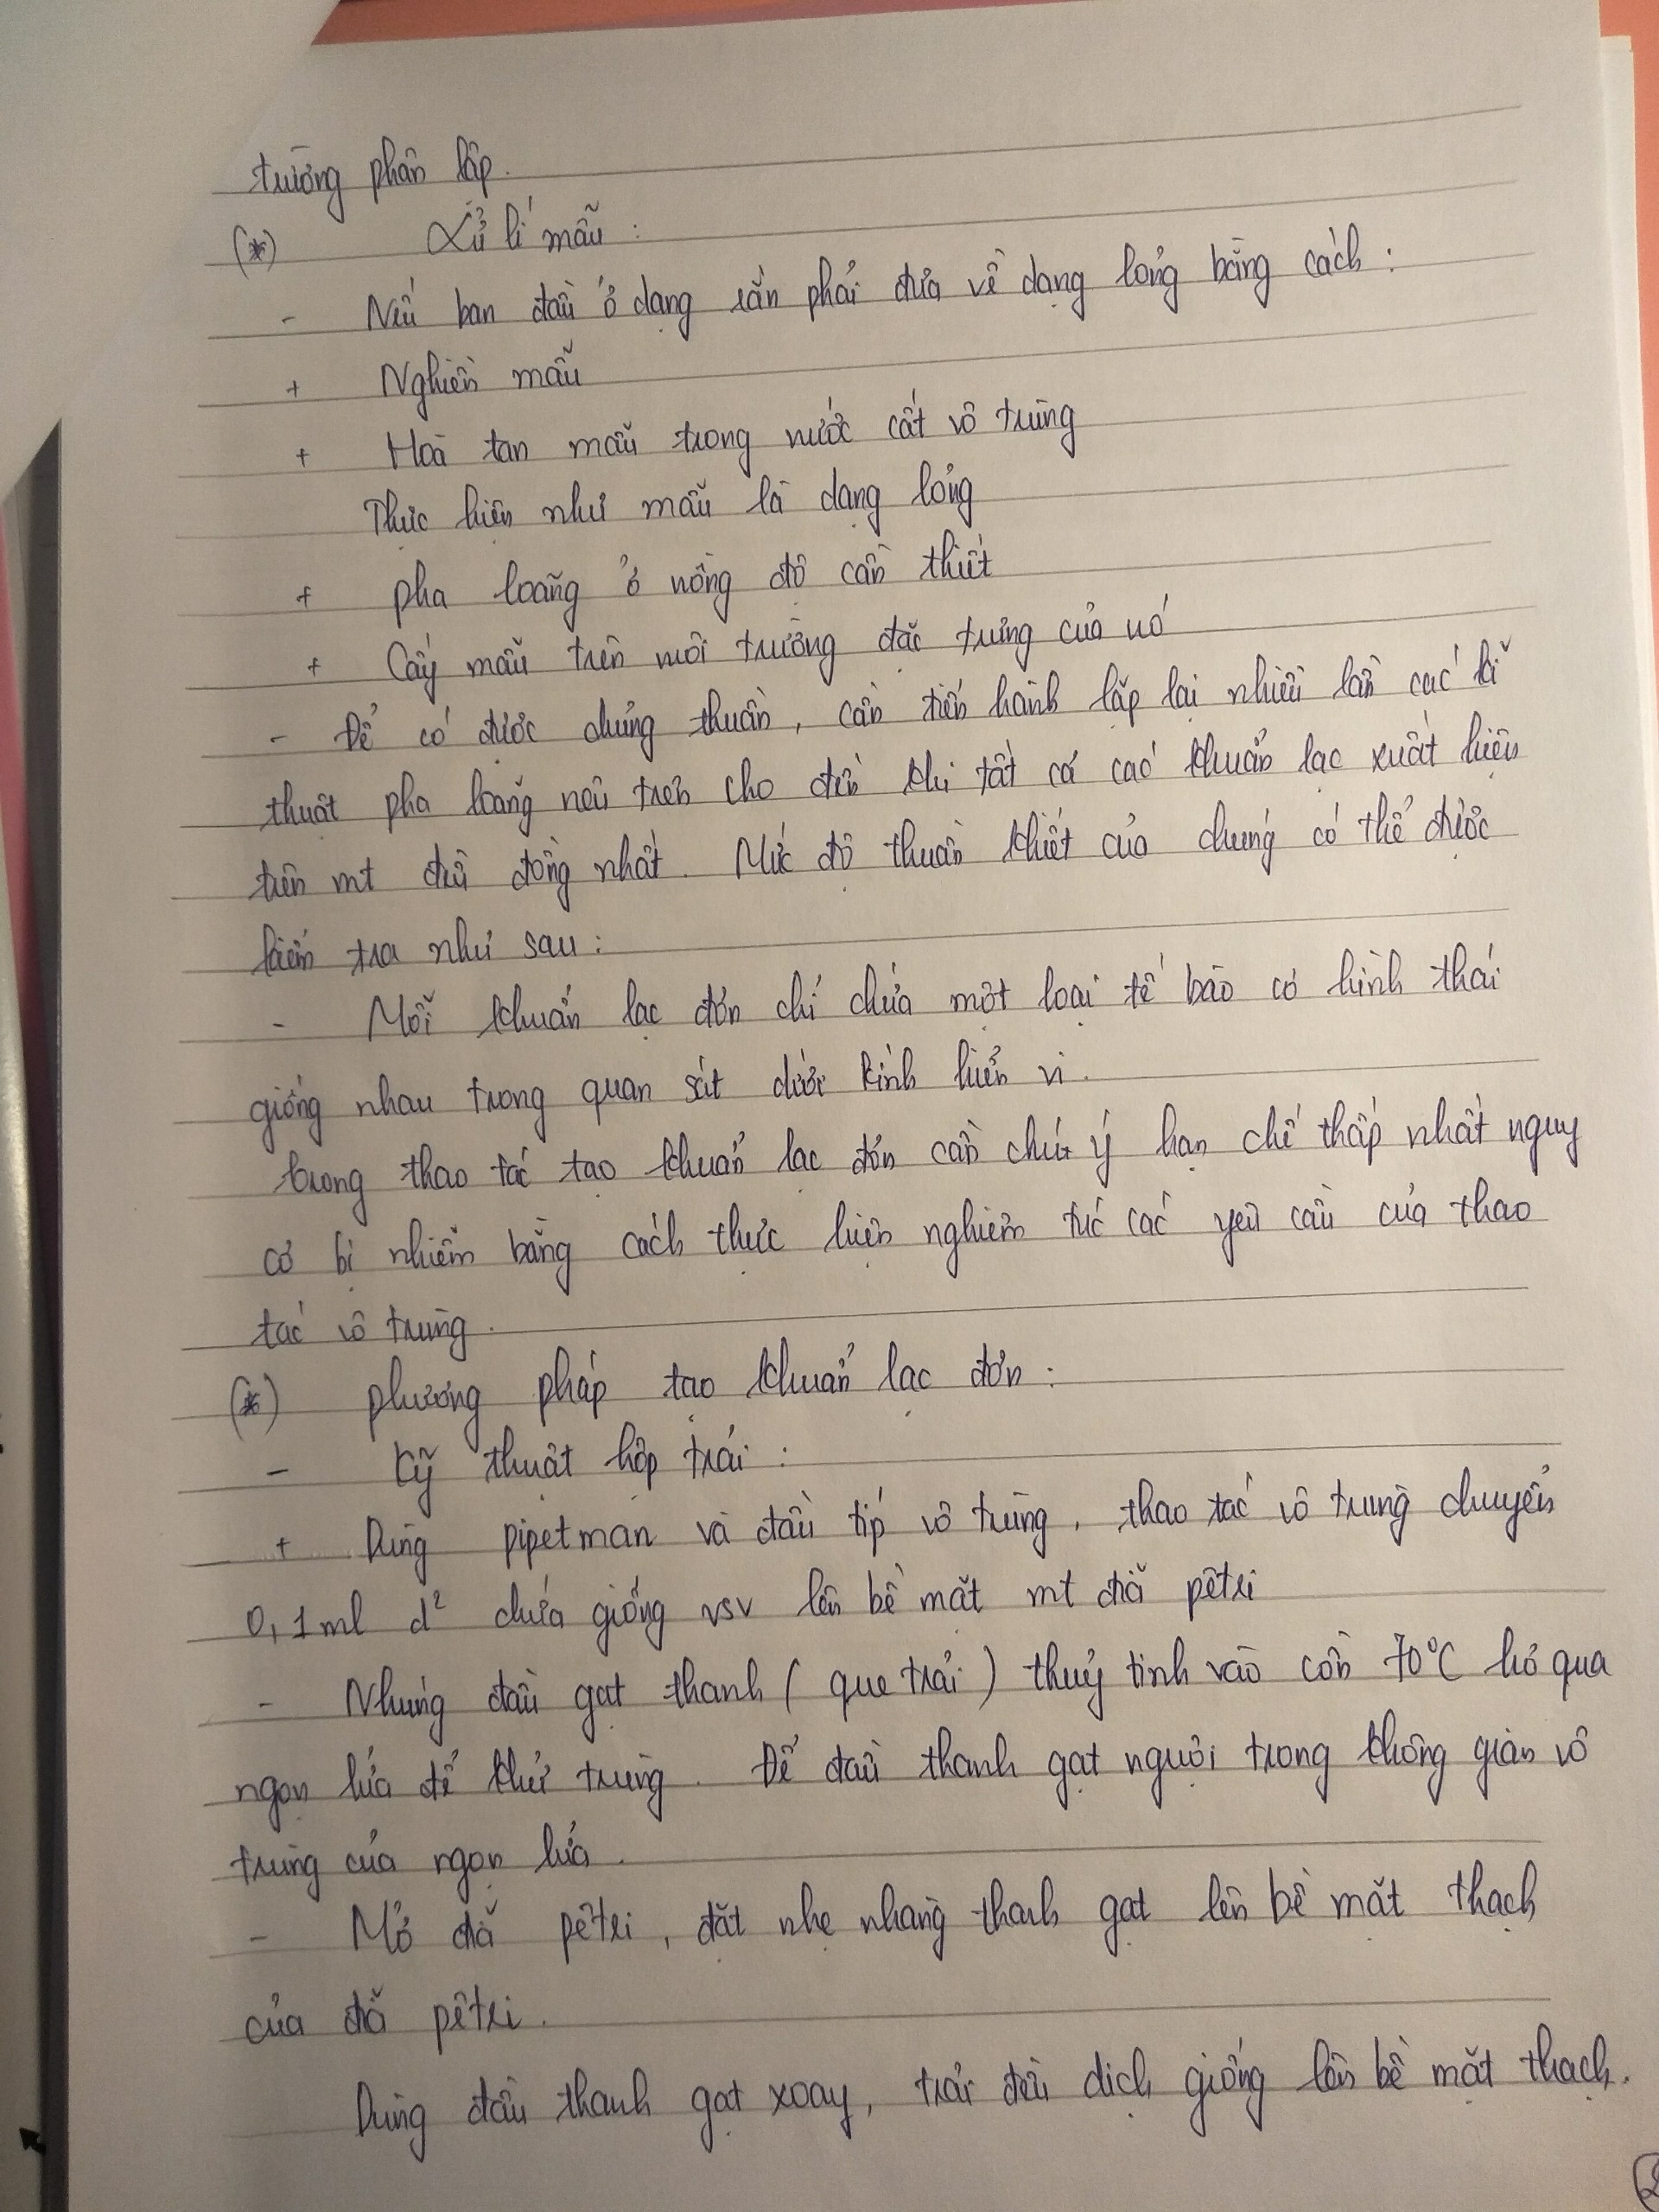 trường phân lập.
(*) Xử lí mẫu :
- Nếu ban đầu ở dạng rắn phải đưa về dạng lỏng bằng cách :
+ Nghiền mẫu
+ Hoà tan mẫu trong nước cất vô trùng
Thực hiện như mẫu là dạng lỏng
+ pha loãng ở nồng độ cần thiết
+ Cấy mẫu trên môi trường đặc trưng của nó
- Để có được chủng thuần, cần tiến hành lặp lại nhiều lần các kĩ
thuật pha loãng nêu trên cho đến khi tất cả các khuẩn lạc xuất hiện
trên mt đều đồng nhất. Mức độ thuần khiết của chúng có thể được
kiểm tra như sau :
- Mỗi khuẩn lạc đơn chỉ chứa một loại tế bào có hình thái
giống nhau trong quan sát dưới kính hiển vi.
trong thao tác tạo khuẩn lạc đơn cần chú ý hạn chế thấp nhất nguy
cơ bị nhiễm bằng cách thực hiện nghiêm túc các yêu cầu của thao
tác vô trùng.
(*) phương pháp tạo khuẩn lạc đơn :
- Kỹ thuật hộp trải :
+ Dùng pipetman và đầu típ vô trùng, thao tác vô trùng chuyển
0,1ml d² chứa giống vsv lên bề mặt mt đĩa pêtri
- Nhúng đầu gạt thanh ( que trải ) thuỷ tinh vào cồn 70°C hơ qua
ngọn lửa để khử trùng. Để đầu thanh gạt nguội trong không gian vô
trùng của ngọn lửa.
- Mở đĩa pêtri, đặt nhẹ nhàng thanh gạt lên bề mặt thạch
của đĩa pêtri.
Dùng đầu thanh gạt xoay, trải đều dịch giống lên bề mặt thạch.